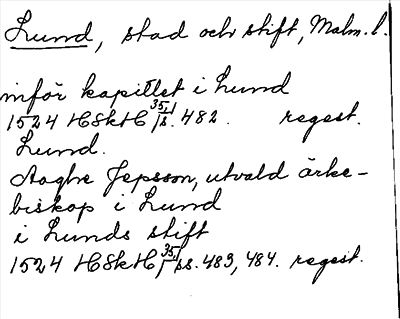 Lund, stad och stift, Malm. l.
inför kapitlet i Lund
1524 HSkH 35,1 s. 482. regest.
Lund.
Aaghe Jepsson, utvald ärke-
biskop i Lund
i Lunds stift
1524 HSkH 35,1 ss. 483, 484. regest.